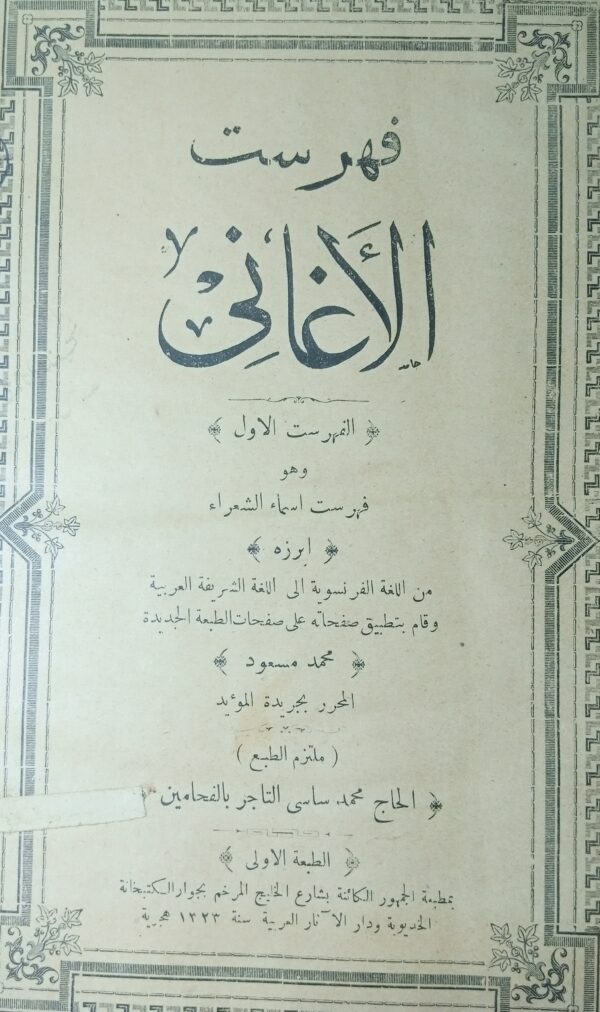 فهرست
الأغاني
حامد
﴿ الفهرست الاول ﴾
وهو
فهرست اسماء الشعراء
﴿ ابرزه ﴾
من اللغة الفرنسوية الى اللغة الشريفة العربية
وقام بتطبيق صفحاته على صفحات الطبعة الجديدة
﴿ محمد مسعود ﴾
المحرر بجريدة المؤيد
( ملتزم الطبع )
﴿ الحاج محمد ساسى التاجر بالفحامين ﴾
﴿ الطبعة الاولى ﴾
بمطبعة الجمهور الكائنة بشارع الخليج المرخم بجوار الكتبخانة
الخديوية ودار الآثار العربية سنة ١٣٢٣ هجرية